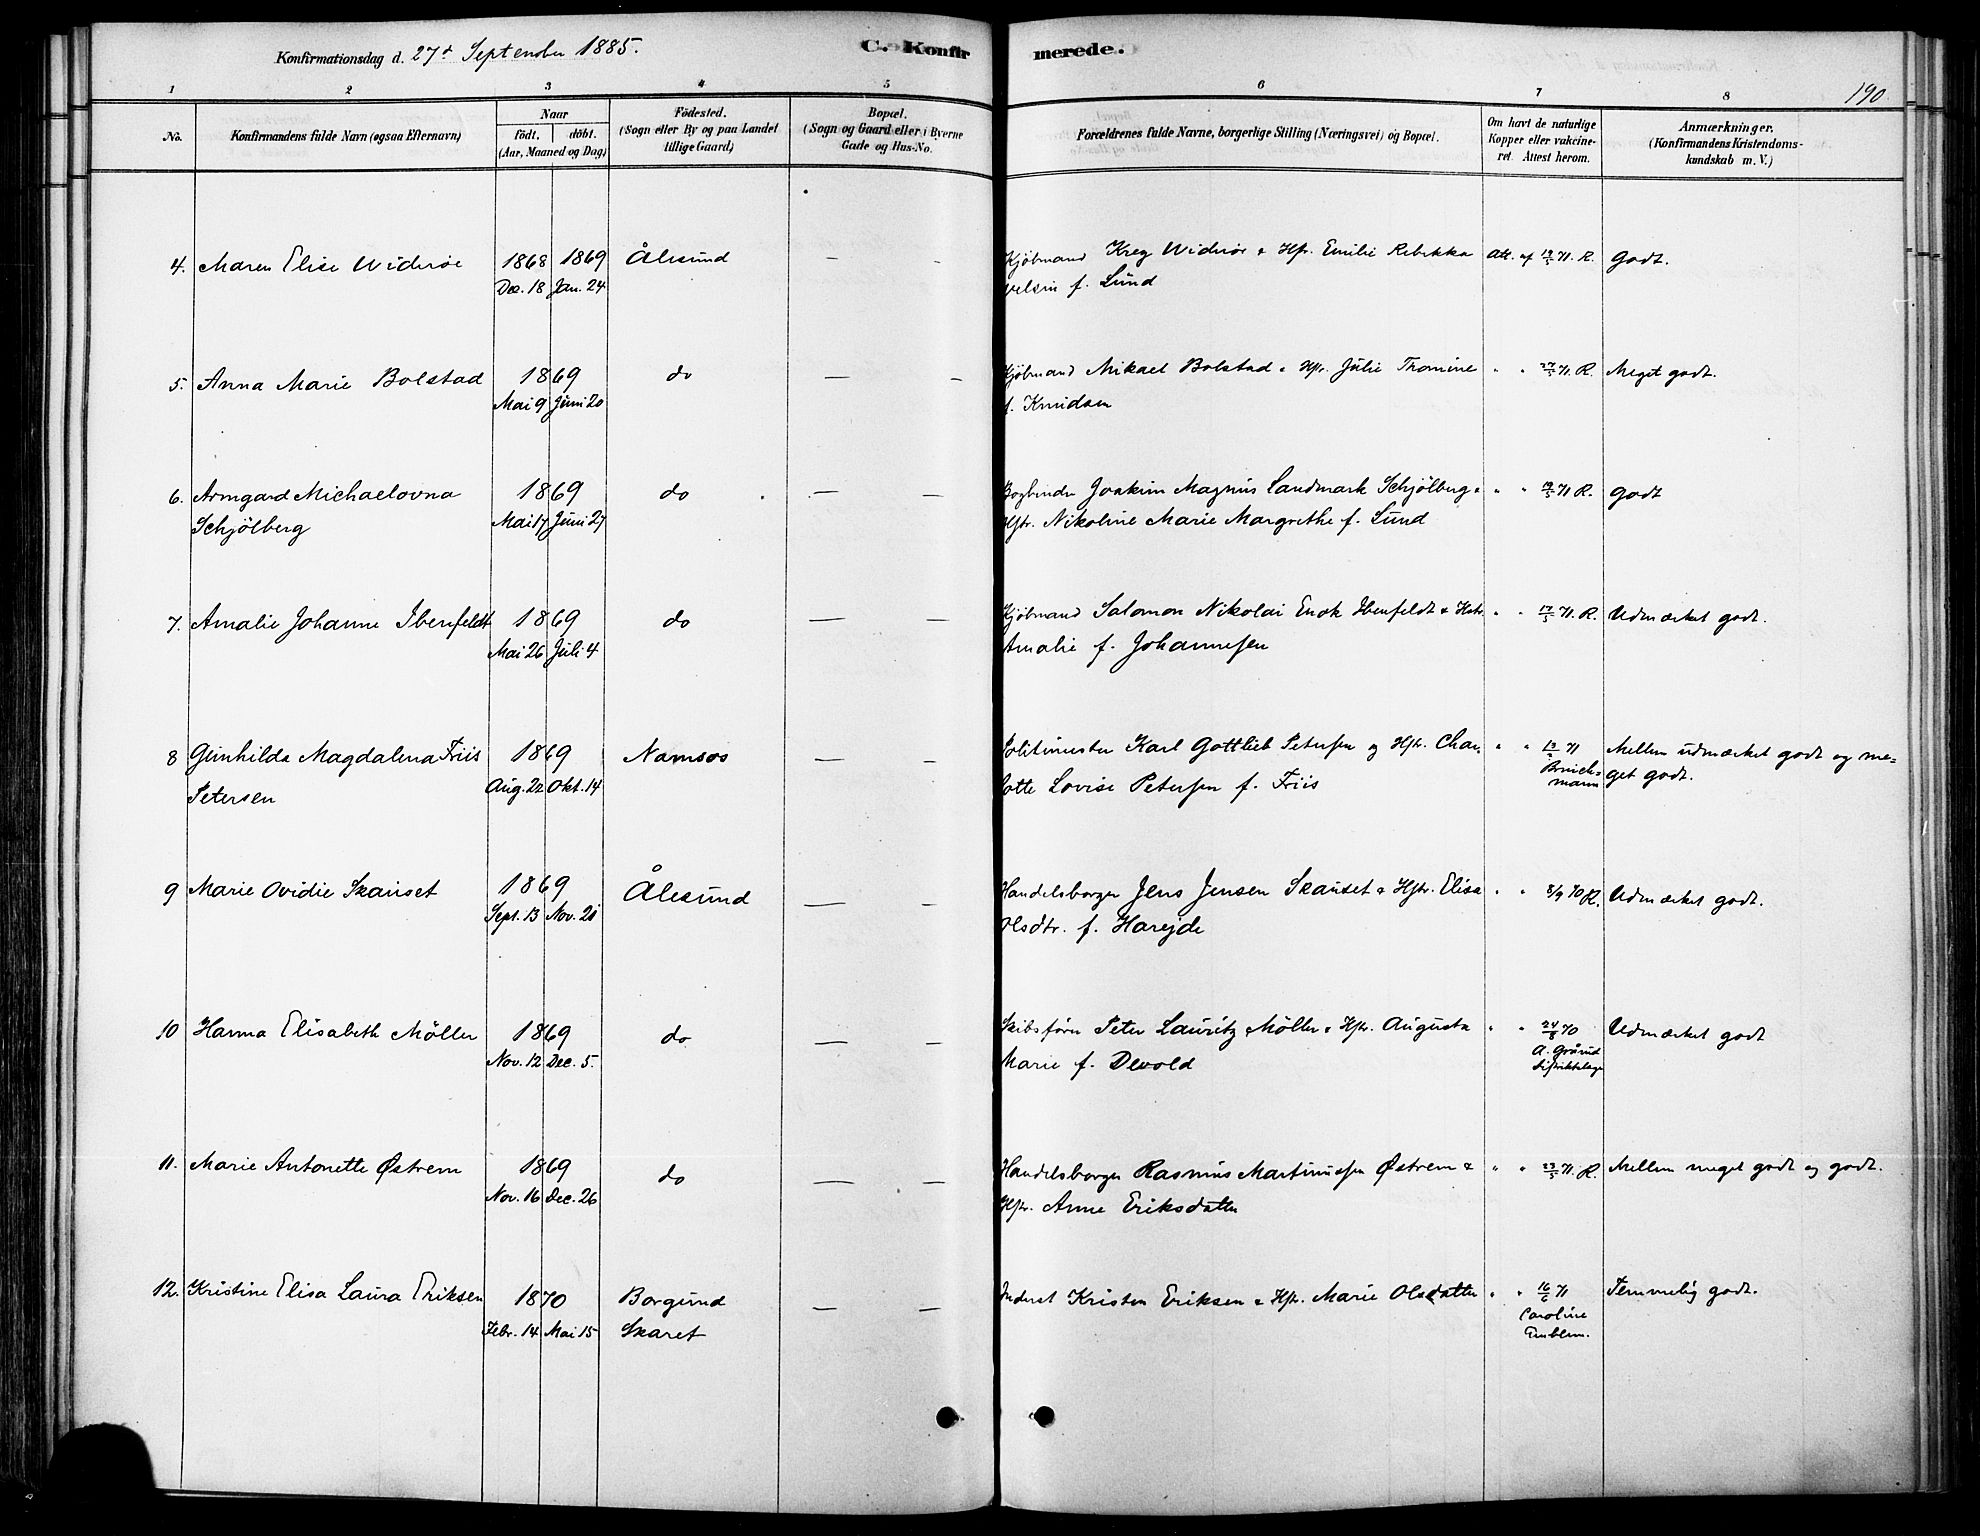 Konfirmationsdag d. 27d September 1885.
C. Konfirmerede.
190
1 2 3 4 5 6 7 8
No.
Konfirmandens fulde Navn (ogsaa Efternavn)
Naar
födt, döbt.
(Aar, Maaned og Dag)
Födested.
(Sogn eller By og paa Landet
tillige Gaard)
Bopæl.
(Sogn og Gaard eller i Byerne
Gade og Hus-No.
Forældrenes fulde Navne, borgerlige Stilling (Næringsvei) og Bopæl.
Om havt de naturlige
Kopper eller vakcine-
ret. Attest herom.
Anmærkninger.
(Konfirmandens Kristendoms-
kundskab m. V.)
4. Maren Elise Wideröe 1868 1869 Ålesund — - Kjöbmand Kreg Wideröe & Hstr. Emilie Rebekka Att. af 19/5 71. R. Godt.
Dec. 18 Jan. 24 f. Lund
5. Anna Marie Bolstad 1869 do — - Kjöbmand Mikael Bolstad & Hstr. Julie Thomine " " 27/5 71. R. Meget godt.
Mai 9 Juni 20 f. Knudsen
6. Armgard Michaelovna 1869 do — - Bogbinder Joakim Magnus Landmark Schjölberg & " " 19/5 71 R. Godt
Schjölberg Mai 17 Juni 27 Hstr. Nikoline Marie Margrethe f. Lund
7. Amalie Johanne Ibenfeldt 1869 do — - Kjöbmand Salomon Nikolai Enok Ibenfeldt & Hstr. " " 17/5 71. R. Udmærket godt.
Mai 26 Juli 4 Amalie f. Johannesen
8 Gunhilda Magdalena Friis 1869 Namsos — - Politimester Karl Gottlieb Petersen og Hstr. Char- " " 71 Mellem udmærket godt og me-
Petersen Aug. 22 Okt. 14 lotte Lovise Petersen f. Friis get godt.
9 Marie Ovidie Skauset 1869 Ålesund — - Handelsborger Jens Jensen Skauset & Hstr. Elisa " " 8/9 70 R. Udmærket godt.
Sept. 13 Nov. 21 Olsdtr. f. Harejde
10 Hanna Elisabeth Möller 1869 do — - Skibsförer Peter Lauritz Möller & Hstr. Augusta " " 24/8 70 Udmærket godt
Nov. 12 Dec. 5. Marie f. Devold
11. Marie Antonette Østrem 1869 do — - Handelsborger Rasmus Martinussen Østrem & " " 23/5 71. R. Mellem meget godt og godt.
Nov. 16 Dec. 26 Hstr. Anne Eriksdatter
12. Kristine Elisa Laura Eriksen 1870 Borgund — - Inderst Kristen Eriksen & Hstr. Marie Olsdatter " " 16/6 71 Temmelig godt.
Febr. 14 Mai 15 Skaret Caroline
Emblem.